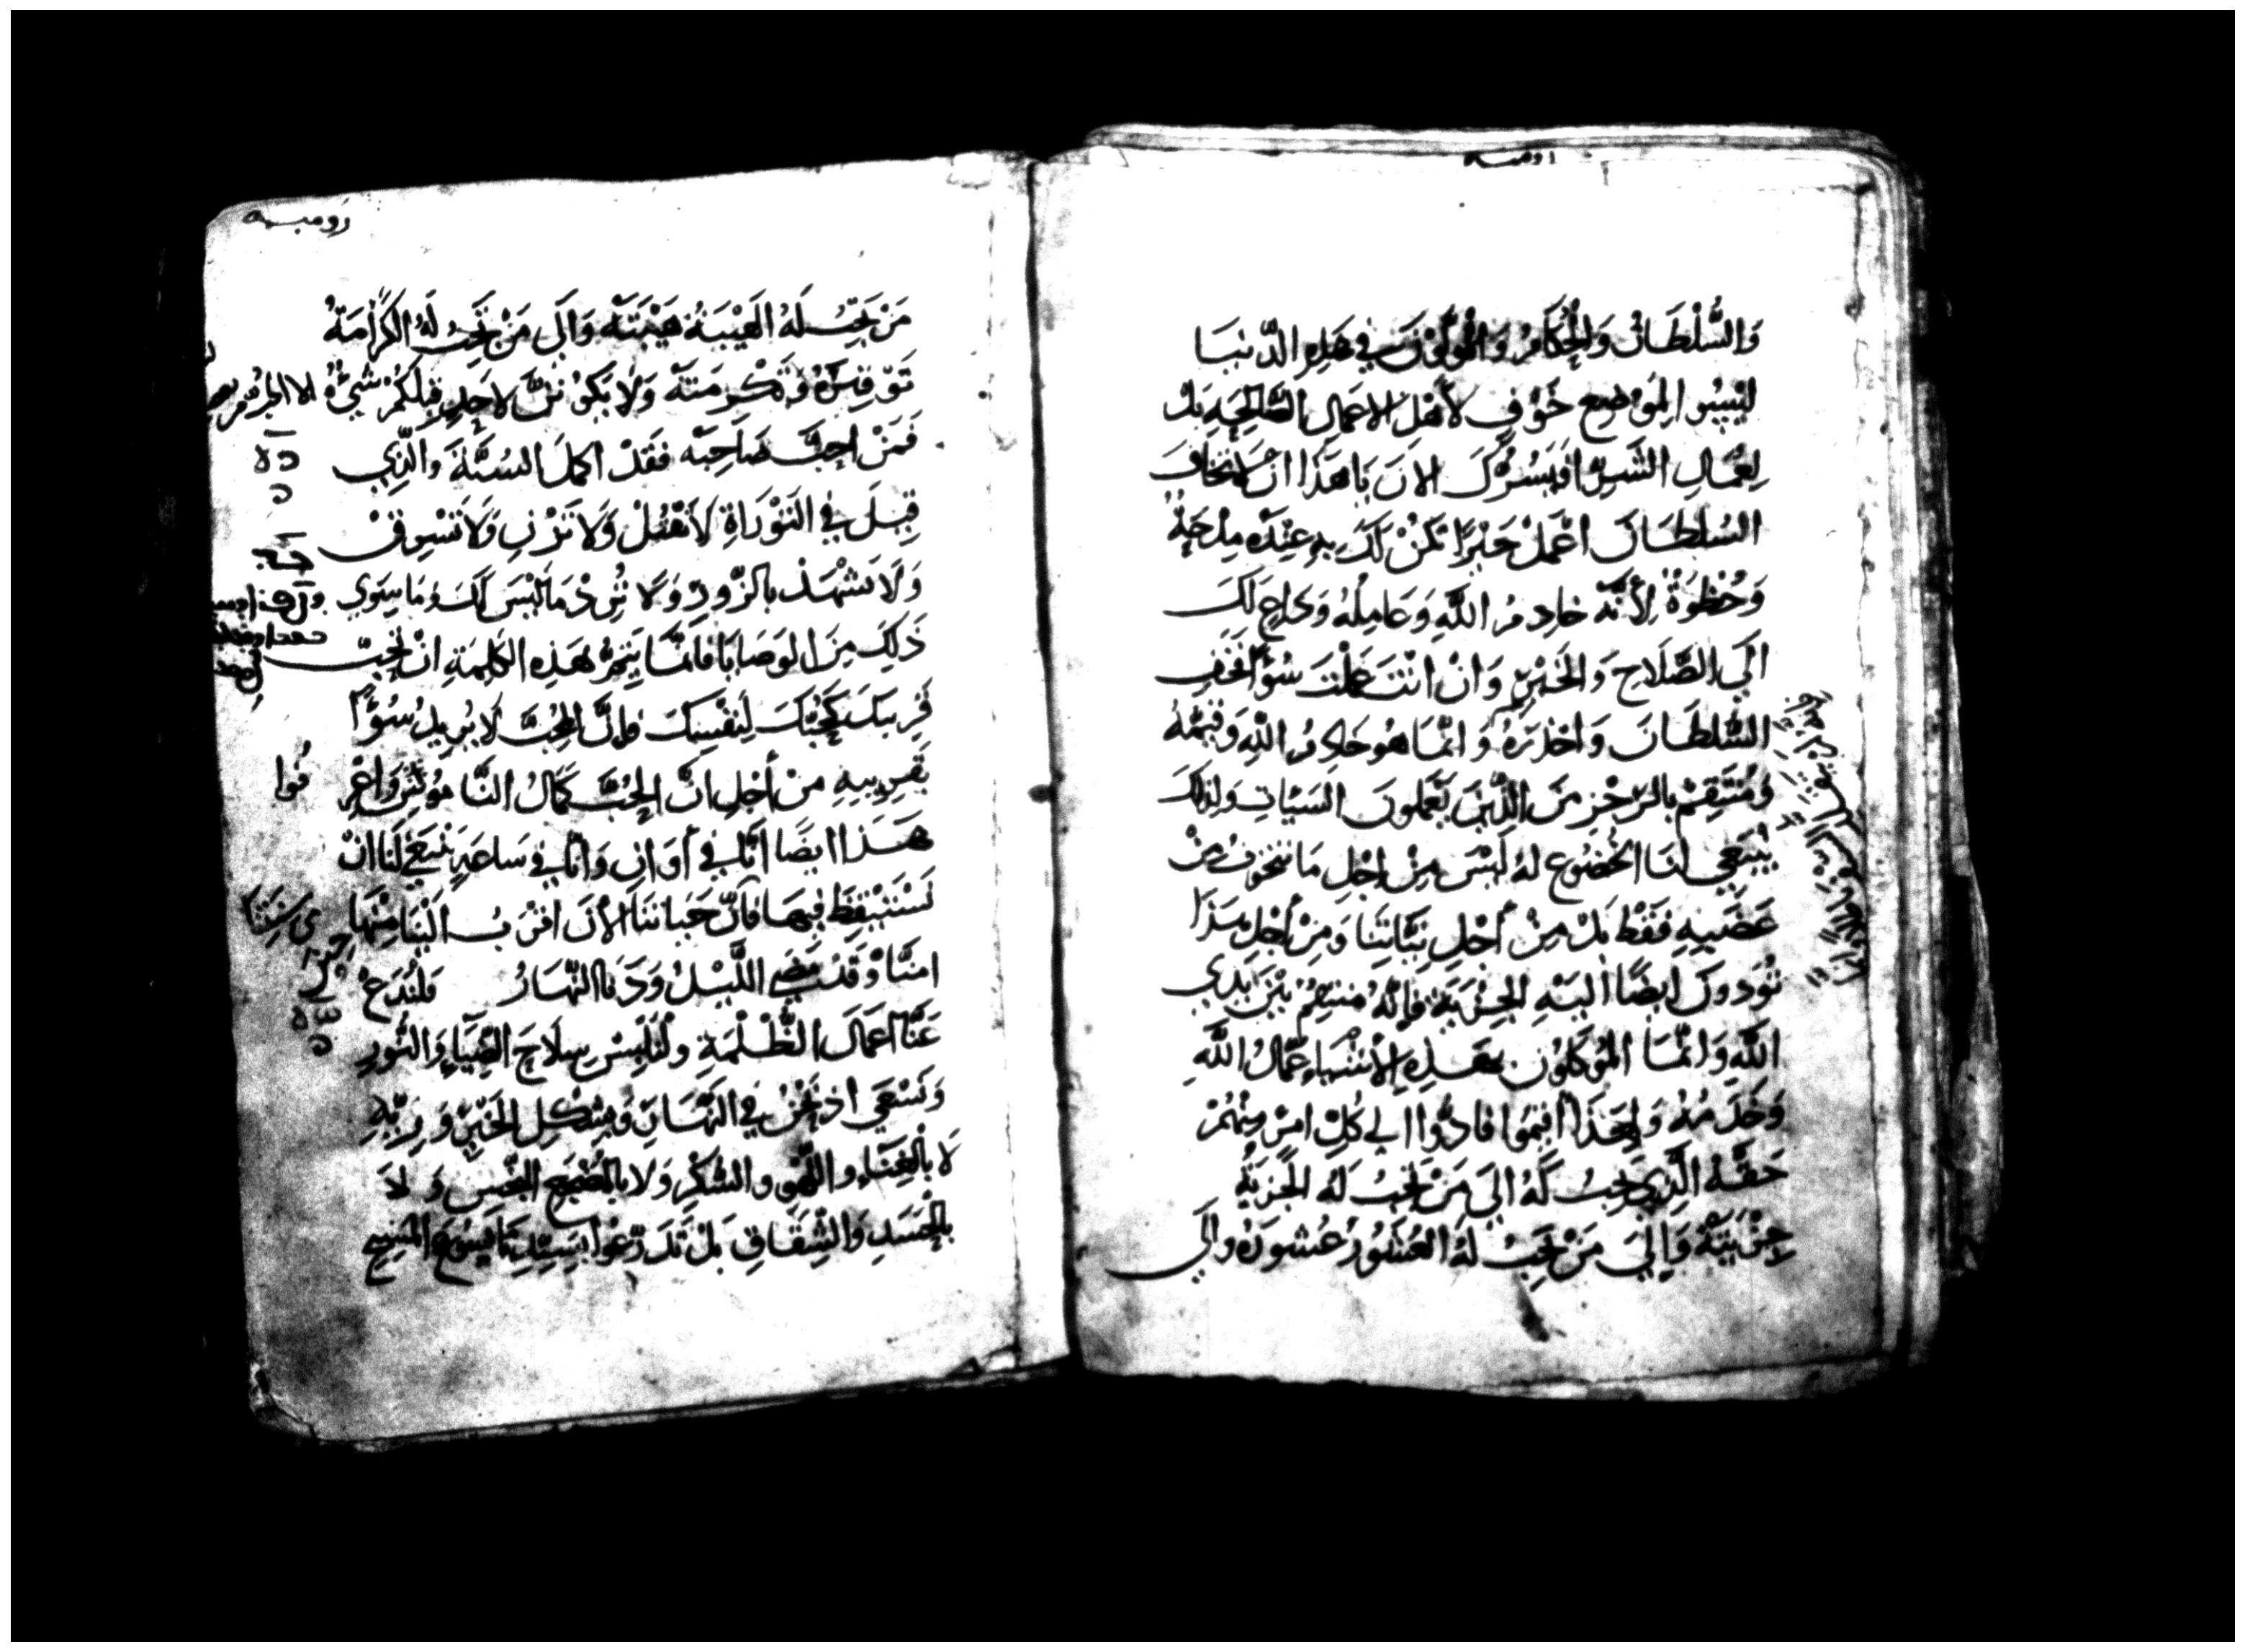 رومية
وَالسُّلْطَانُ وَالْحُكَّامُ وَالْمُوَكَّلُوْنَ فِي هَذِهِ الدُّنْيَا
لَيْسُو الِمَوْضِعِ خَوْفٍ لأَهْلِ الاعمَالِ الصَّالِحَةِ بَلْ
لِعُمَّالِ الشَّرِّ افَيَسُرُّكَ الانَ يَا هَذَا انْ لاَ تخَافَ
السُلطَانَ اعْمَلْ خَيْرًا تَكُنْ لَكَ بِهِ عِنْدَهُ مِدْحَةٌ
وَحُظْوَةٌ لأَنَّهُ خادمُ اللَّهِ وَعَامِلُهُ وَدَاعٍ لَكَ
الَى الصَّلَاحِ وَالخَيْرِ وَانْ انْتَ عَمِلْتَ سُوْءً فَخَفِ
السُّلطَانَ وَاحْذَرَهُ وَانَّمَا هُوَ خَادِمُ اللَّهِ وَقَيِّمُهُ
وَمُنْتَقِمٌ بالرّجْزِ مِنَ الَّذِيْنَ يَعْمَلُونَ السَيّاتِ وَلِذلِكَ
يَنْبَغِي لَنَا الخُضُوع لهُ لَيْسَ مِنْ اجْلِ مَا نتخوّفُ مِنْ
غَضَبِهِ فَقَطْ بَلْ مِنْ أَجْلِ نِيَّاتِنَا وَمِنْ أَجْلِ هَذَا
تُؤدونَ ايضًا اليْهِ الجِزْيَةَ فَإنَّهُ مُنتقِمٌ بَيْنَ ايْدِي
اللَّه وَانَّمَا المُوكَلُوْن بهَذِهِ الاشْيَاءِ عُمَّالُ اللَّهِ
وَخَدَمُهُ وَلِهَذَا أَقِيْمُوا فَادُّوا الى كُلّ امْرٍ مِنْهُمْ
حَقَّهُ الَّذِي يَجبُ لَهُ الَى مَنْ تَجبُ لَهُ الجِزْيَةُ
جِزْيَتَهُ وَإِلَى مَنْ تَجِبُ لهُ العُشُوْرُ عُشورَهُ وَالَى
رومية
مَنْ تَجِبُ لَهُ الهَيْبَةُ هَيْبَتَهُ وَالَى مَنْ تَجِبُ لَهُ الكَرَامَةُ
تَوْقِيْرَهُ وَتَكْرِمَتَهُ وَلاَ يَكُوْنَنَّ لاَحَدٍ قِبَلَكُمْ شَيْءٌ الا
فَمَنْ احَبَّ صَاحِبَهُ فَقَدْ اكملَ السُنَّةَ وَالَّذِي
قِيلَ في التَوْرَاةِ لاَ تَقْتُلْ وَلاَ تَزْنِ وَلاَ تَسْرِقْ
وَلاَ تَشْهَدْ بالزُّورِ وَلاَ تُرِدْ مَا لَيْسَ لَكَ وَمَا سِوَى
ذَلِكَ مِنَ الوَصَايَا فَانَّمَا يَتِمُّ بهَذِهِ الكَلِمَةِ انْ تُحِبّ
قَرِيبَكَ كَحُبِّكَ لِنَفْسِكَ فإنَّ المُحِبَّ لاَ يُريدُ سُوْءًا
بقَرِيبِهِ مِنْ أَجْلِ انَّ الحُبَّ كَمَالُ النَّامُوْسِ وَاعْرِ
فُوا
هَذَا ايضًا انَّا في أَوَانٍ وَانَّا في سَاعَةٍ يَنْبَغي لَنَا انْ
نَسْتَيْقِظَ فِيهَا فَانَّ حَيَاتَنَا الآنَ اقْرَبُ الَيْنَا مِنْهَا
امنَّا وَقَدْ مَضَى اللَّيْلُ وَدَنَا النَّهَارُ فلْنَدَعْ
عَنَّا اعمَالَ الظُّلْمَةِ ولْنَلْبَسْ سِلَاحَ الضِّيَاءِ وَالنُّورِ
وَنَسْعَى اذ نَحْنُ فِي النَّهَارِ وَبِشَكْلِ الخَيْرِ وَزِيّهِ
لاَ بالغِنَاءِ وَاللَّهْوِ وَالسُّكْرِ وَلا بالمَضْجَعِ النَّجِس وَلاَ
بالحَسَدِ وَالشِّقَاقِ بَلْ تَدَرَّعُوا بِسَيّدِنَا يَسُوْعَ المَسِيحِ